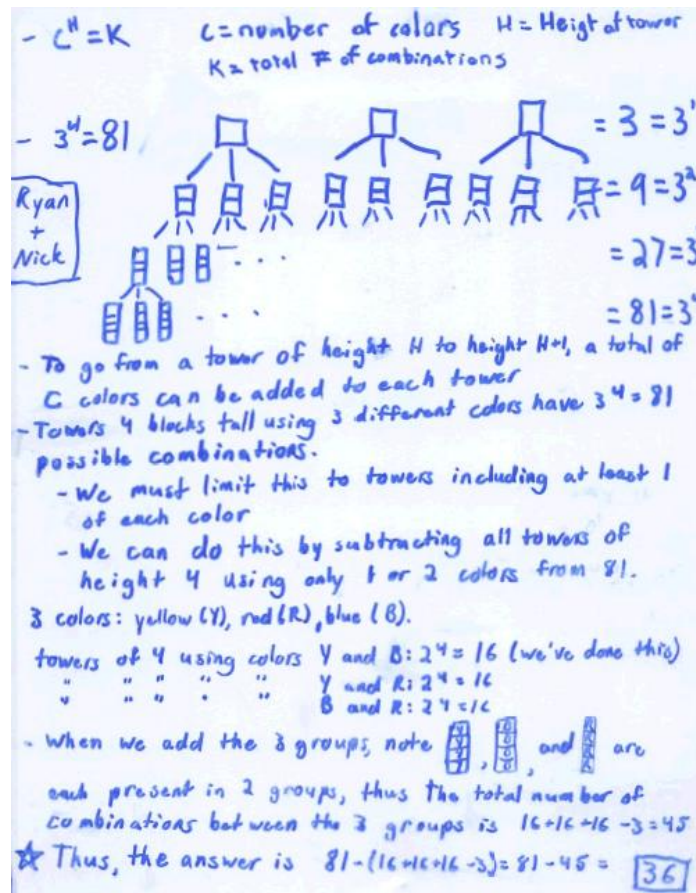 - C^H = K   C = number of colors   H = Heigt of tower
K = total # of combinations
- 3^4 = 81
= 3 = 3^1
Ryan
+
Nick
= 9 = 3^2
= 27 = 3
= 81 = 3
- To go from a tower of height H to height H+1, a total of
C colors can be added to each tower
- Towers 4 blocks tall using 3 different colors have 3^4 = 81
possible combinations.
- We must limit this to towers including at least 1
of each color
- We can do this by subtracting all towers of
height 4 using only 1 or 2 colors from 81.
3 colors: yellow (Y), red (R), blue (B).
towers of 4 using colors Y and B: 2^4 = 16 (we've done this)
" " " " " Y and R: 2^4 = 16
B and R: 2^4 = 16
- When we add the 3 groups, note , , and are
each present in 2 groups, thus the total number of
combinations between the 3 groups is 16+16+16-3=45
☆ Thus, the answer is 81-(16+16+16-3)= 81-45 = 36